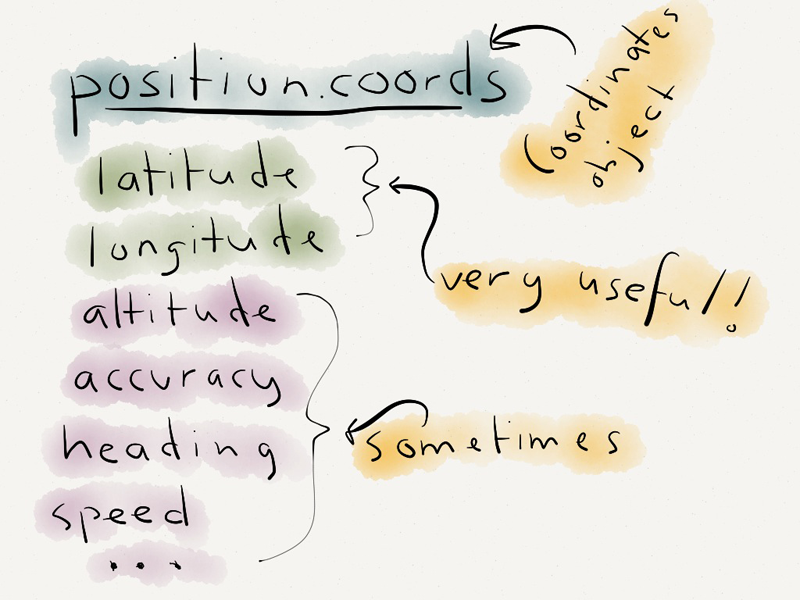 position.coords
Coordinates
object
latitude
longitude
very useful!
altitude
accuracy
heading
sometimes
speed
...